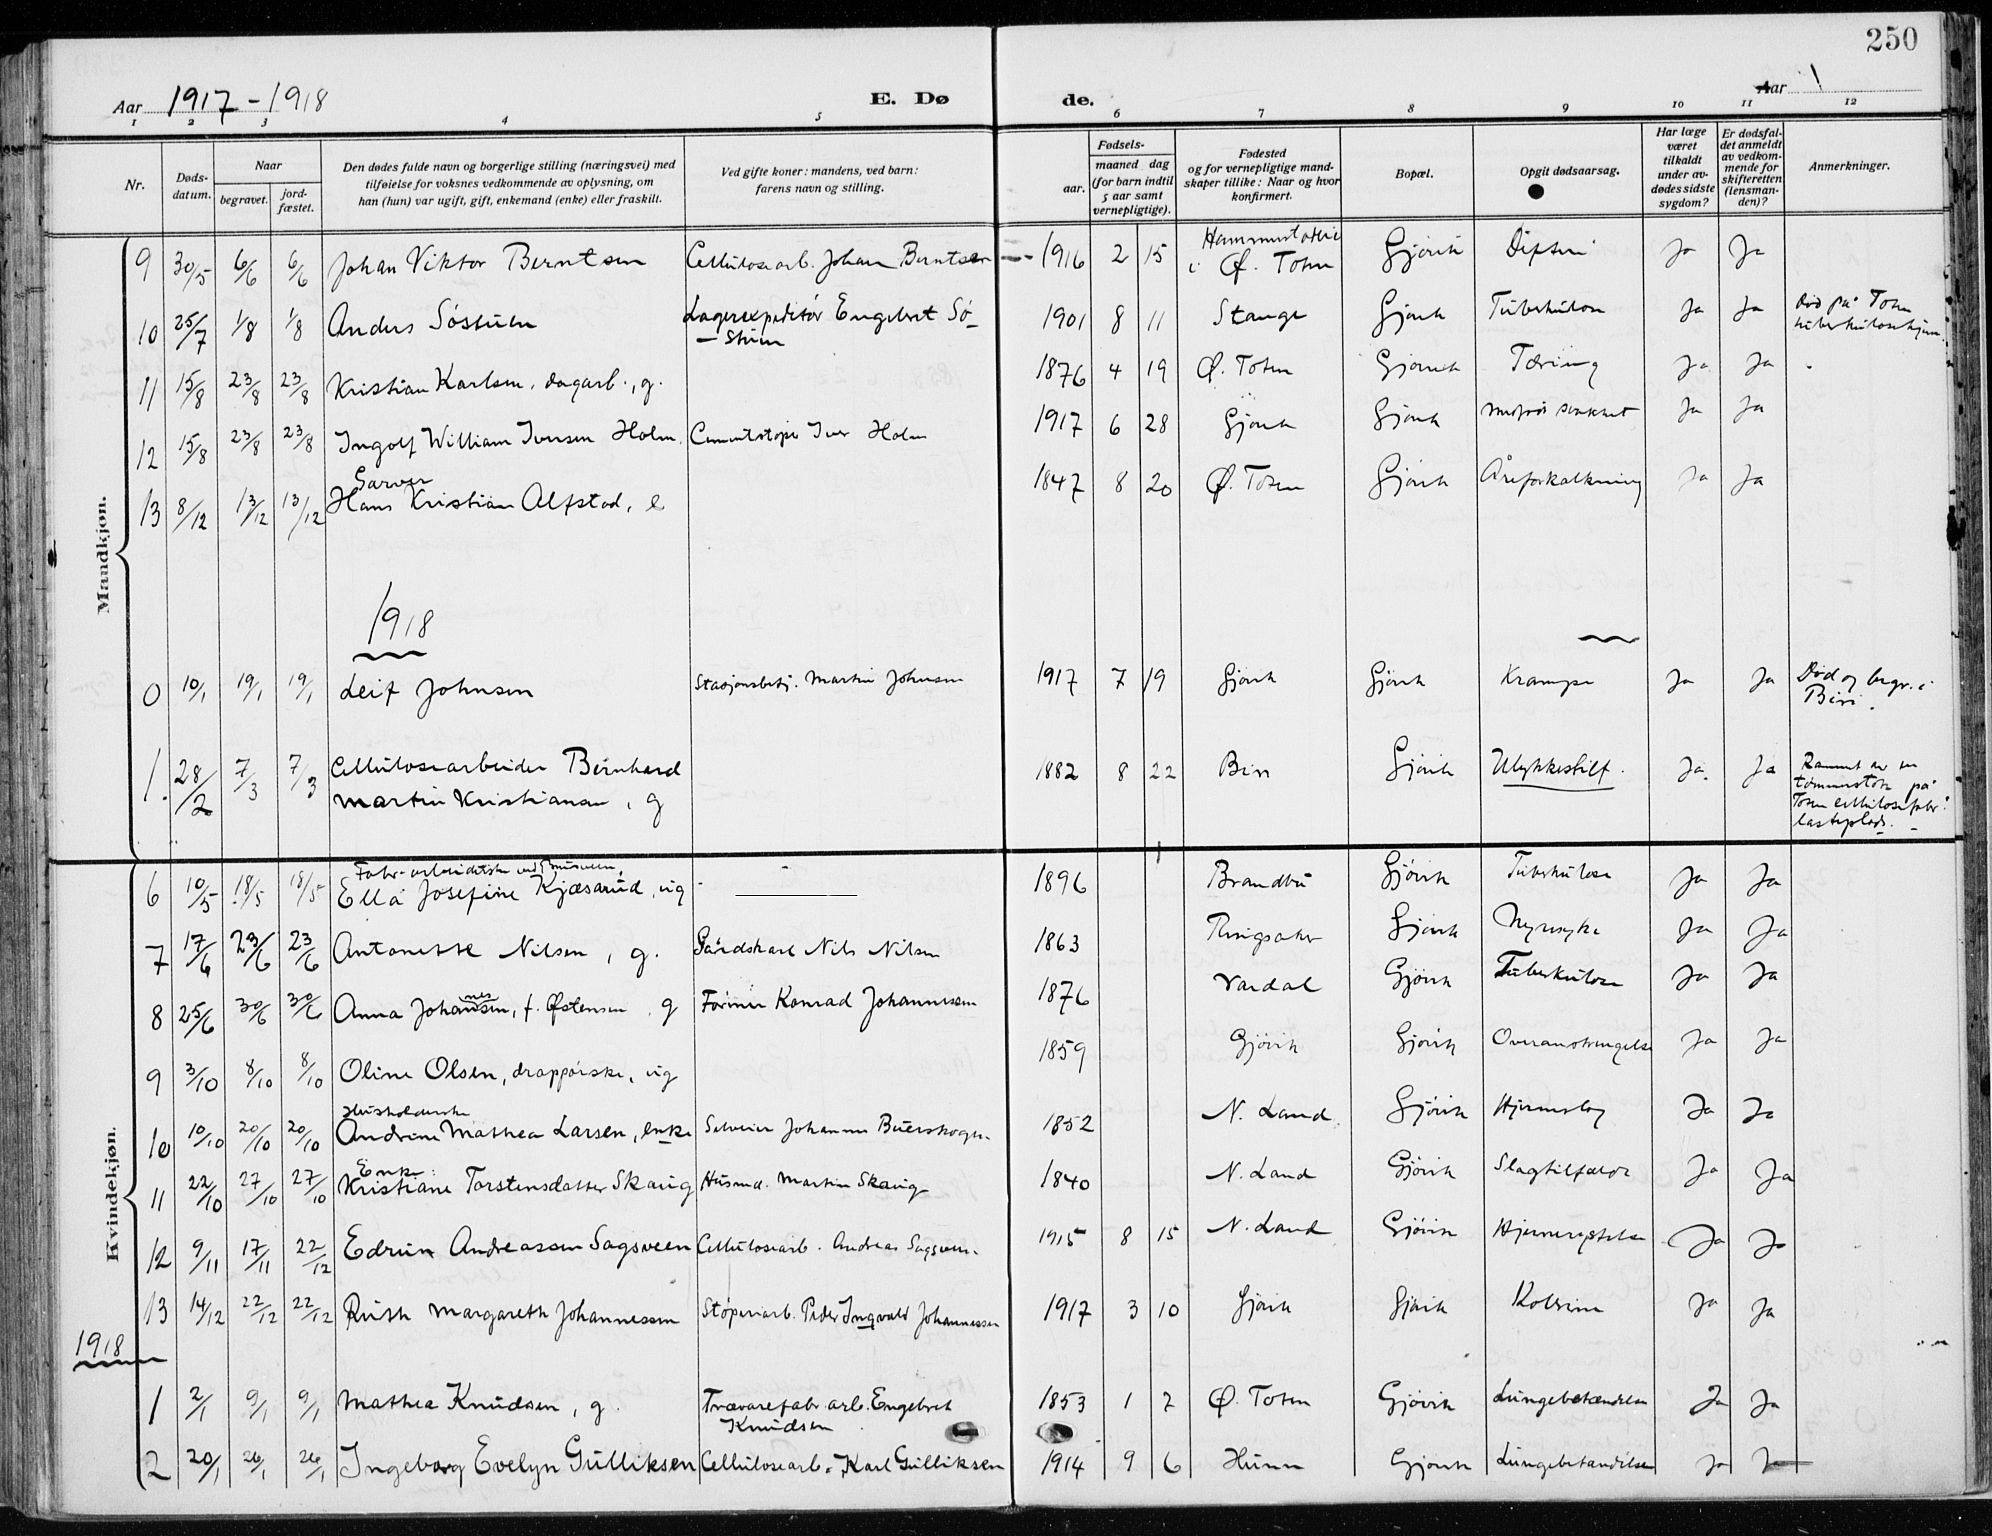 250
Aar 1917 - 1918 E. Dø de. Aar
1 2 3 4 5 6 7 8 9 10 11 12
Nr. Døds-datum. Naar begravet. jord-fæstet. Den dødes fulde navn og borgerlige stilling (næringsvei) med tilføielse for voksnes vedkommende av oplysning, om han (hun) var ugift, gift, enkemand (enke) eller fraskilt. Ved gifte koner: mandens, ved barn: farens navn og stilling. Fødsels- aar. maaned dag (for barn indtil 5 aar samt vernepligtige). Fødested og for vernepligtige mand-skaper tillike: Naar og hvor konfirmert. Bopæl. Opgit dødsaarsag. Har læge været tilkaldt under av-dødes sidste sygdom? Er dødsfal-det anmeldt av vedkom-mende for skifteretten (lensman-den)? Anmerkninger.
Mandkjøn.
9 30/5 6/6 6/6 Johan Viktor Berntsen Cellulosearb. Johan Berntsen 1916 2 15 i Ø. Toten Gjøvik Difteri Ja Ja
10 25/7 1/8 1/8 Anders Søstuen Lagerexpeditør Engebret Sø-stuen 1901 8 11 Stange Gjøvik Tuberkulose Ja Ja Død på Toten tuberkulosehjem.
11 15/8 23/8 23/8 Kristian Karlsen, dagarb., g. 1876 4 19 Ø. Toten Gjøvik Tæring Ja Ja
12 15/8 23/8 23/8 Ingolf William Iversen Holm Cementstøper Iver Holm 1917 6 28 Gjøvik Gjøvik Ja Ja
13 8/12 13/12 13/12 Garver Hans Kristian Alfstad, e 1847 8 20 Ø. Toten Gjøvik Åreforkalkning Ja Ja
1918
0 10/1 19/1 19/1 Leif Johnsen Stasjonsbetj. Martin Johnsen 1917 7 19 Gjøvik Gjøvik Krampe Ja Ja Død og begr. i Biri.
1. 28/2 7/3 7/3 Cellulosearbeider Bernhard Martin Kristiansen, g 1882 8 22 Biri Gjøvik Ulykkestilf. Ja. Ja Rammet av en tømmerstok på Toten cellulosefabr. lasteplads.
Kvindekjøn.
6 10/5 18/5 18/5 Fabr-arbeiderske ved Ella Josefine Kjæsarud, ug 1896 Brandbu Gjøvik Tuberkulose Ja Ja
7 17/6 23/6 23/6 Antonette Nilsen, g. Gårdskarl Nils Nilsen 1863 Ringsaker Gjøvik Nyresyke Ja Ja
8 25/6 30/6 30/6 Anna Johannessen, f. Østensen, g Former Konrad Johannessen 1876 Vardal Gjøvik Tuberkulose Ja Ja
9 3/10 8/10 8/10 Oline Olsen, ug 1859 Gjøvik Gjøvik Overanstrengelse Ja Ja
10 10/10 20/10 20/10 Husholderske Andrine Mathea Larsen, enke Selveier Johannes 1852 N. Land Gjøvik Hjerneslag Ja Ja
11 22/10 27/10 27/10 Enke: Kristiane Torstensdatter Skaug Husmd. Martin Skaug 1840 N. Land Gjøvik Slagtilfælde Ja Ja
12 9/11 17/11 22/12 Edrun Andreassen Sagsveen Cellulosearb. Andreas Sagsveen. 1915 8 15 N. Land Gjøvik Hjernerystelse Ja Ja
13 14/12 22/12 22/12 Ruth Margareth Johannessen Støperiarb. Peder Ingvald Johannessen 1917 3 10 Gjøvik Gjøvik Kolerine Ja Ja
1918
1 2/1 9/1 9/1 Mathea Knudsen, g. Trævarefabr. arb. Engebret Knudsen 1853 1 7 Ø. Toten Gjøvik Lungebetændelse Ja Ja
2 20/1 26/1 26/1 Ingeborg Evelyn Gulliksen Cellulosearb. Karl Gulliksen 1914 9 6 Hunn Gjøvik Lungebetændelse Ja Ja